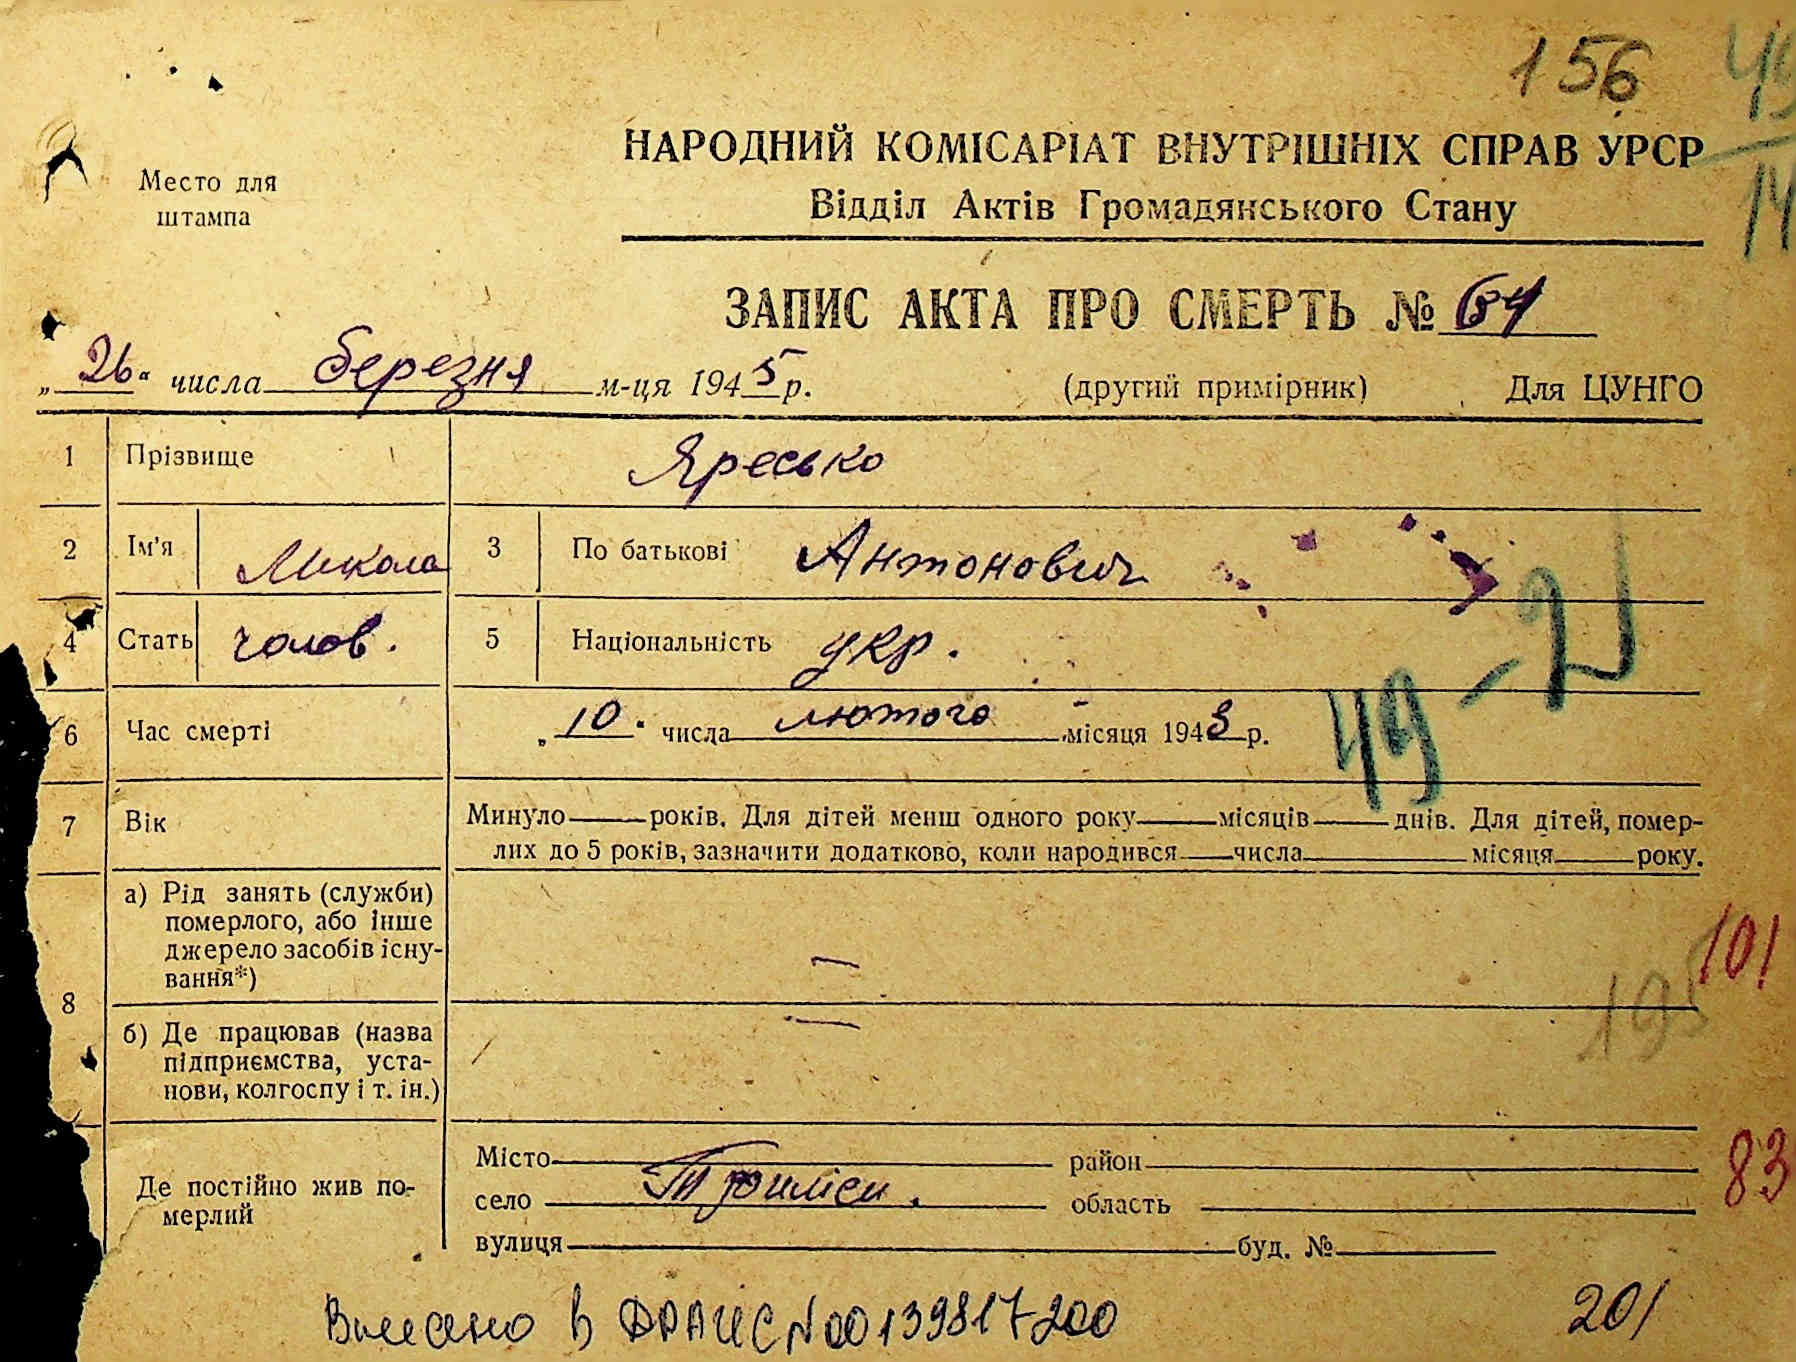 156
НАРОДНИЙ КОМІСАРІАТ ВНУТРІШНІХ СПРАВ УРСР
14
Место для
штампа
Відділ Актів Громадянського Стану
ЗАПИС АКТА ПРО СМЕРТЬ № 64
„26“ числа березня м-ця 1945 р. (другий примірник) Для ЦУНГО
1 Прізвище Яресько
2 Ім'я Микола 3 По батькові Антонович
4 Стать чолов. 5 Національність укр.
49-21
6 Час смерті „10. числа лютого місяця 1943 р.
7 Вік Минуло років. Для дітей менш одного року місяців днів. Для дітей, помер-
лих до 5 років, зазначити додатково, коли народився числа місяця року.
8 а) Рід занять (служби)
померлого, або інше
джерело засобів існу-
вання*) —
101
195
б) Де працював (назва —
підприємства, уста-
нови, колгоспу і т. ін.)
Місто район
83
Де постійно жив по-
мерлий
село область
вулиця буд. №
Внесено в ДРАЦС N00139817200
201